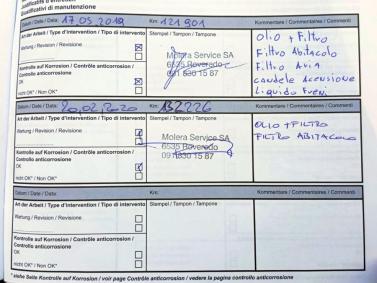 ificativi di manutenzione
Datum / Date / Data: 17.05.2019 Km: 121901 Kommentare / Commentaires / Commenti
Art der Arbeit / Type d'intervention / Tipo di intervento Stempel / Tampon / Timbro
Olio + Filtro
Wartung / Revision / Revisione
Filtro Abitacolo
Molera Service SA
Filtro Aria
Kontrolle auf Korrosion / Contrôle anticorrosion /
Controllo anticorrosione
6535 Roveredo
091 830 15 87
Candele Accensione
OK
Liquido Freni
nicht OK* / Non OK*
Datum / Date / Data: 20.02.2020 Km: 132226 Kommentare / Commentaires / Commenti
Art der Arbeit / Type d'intervention / Tipo di intervento Stempel / Tampon / Timbro
OLIO + FILTRO
Wartung / Revision / Revisione
FILTRO ABITACOLO
Molera Service SA
6535 Roveredo
Kontrolle auf Korrosion / Contrôle anticorrosion /
Controllo anticorrosione
091 830 15 87
OK
nicht OK* / Non OK*
Datum / Date / Data: Km: Kommentare / Commentaires / Commenti
Art der Arbeit / Type d'intervention / Tipo di intervento Stempel / Tampon / Timbro
Wartung / Revision / Revisione
Kontrolle auf Korrosion / Contrôle anticorrosion /
Controllo anticorrosione
OK
nicht OK* / Non OK*
* siehe Seite Kontrolle auf Korrosion / voir page Contrôle anticorrosion / vedere la pagina controllo anticorrosione